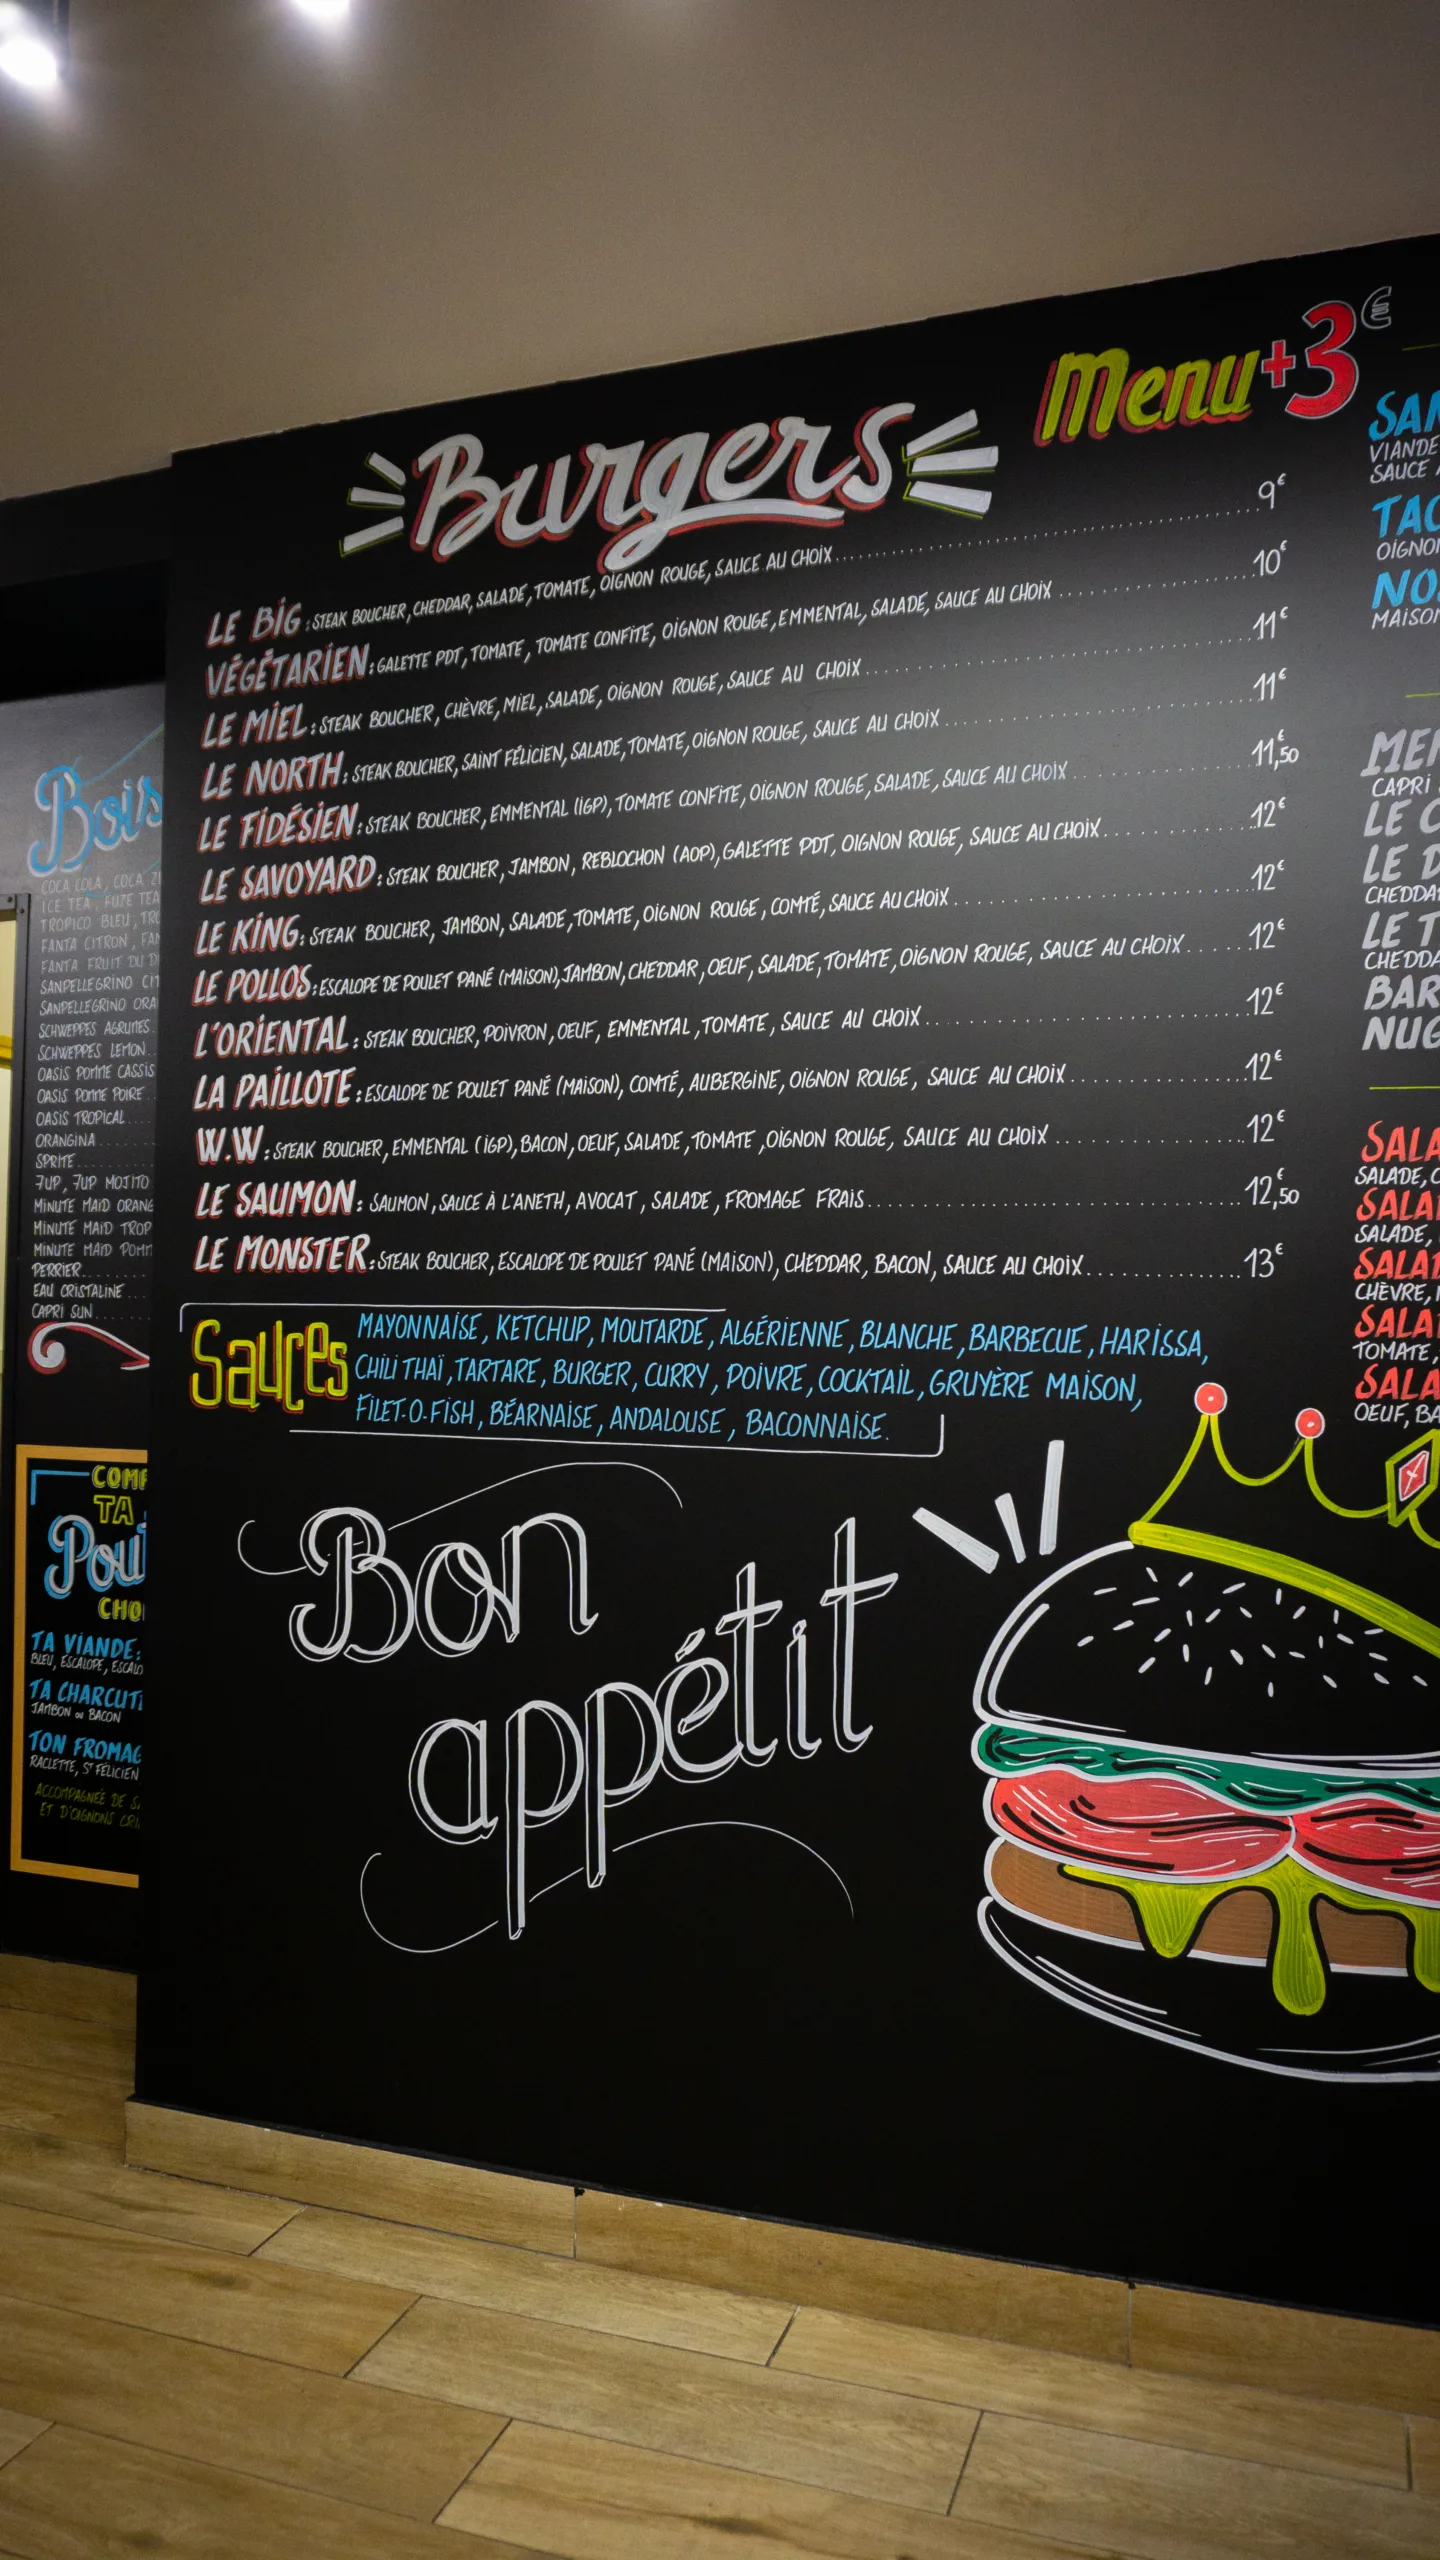 Burgers
Menu +3€
LE BIG : STEAK BOUCHER, CHEDDAR, SALADE, TOMATE, OIGNON ROUGE, SAUCE AU CHOIX 9€
VÉGÉTARIEN : GALETTE PDT, TOMATE, TOMATE CONFITE, OIGNON ROUGE, EMMENTAL, SALADE, SAUCE AU CHOIX 10€
LE MIEL : STEAK BOUCHER, CHÈVRE, MIEL, SALADE, OIGNON ROUGE, SAUCE AU CHOIX 11€
LE NORTH : STEAK BOUCHER, SAINT FÉLICIEN, SALADE, TOMATE, OIGNON ROUGE, SAUCE AU CHOIX 11€
LE FIDÉSIEN : STEAK BOUCHER, EMMENTAL (IGP), TOMATE CONFITE, OIGNON ROUGE, SALADE, SAUCE AU CHOIX 11,50€
LE SAVOYARD : STEAK BOUCHER, JAMBON, REBLOCHON (AOP), GALETTE PDT, OIGNON ROUGE, SAUCE AU CHOIX 12€
LE KING : STEAK BOUCHER, JAMBON, SALADE, TOMATE, OIGNON ROUGE, COMTÉ, SAUCE AU CHOIX 12€
LE POLLOS : ESCALOPE DE POULET PANÉ (MAISON), JAMBON, CHEDDAR, OEUF, SALADE, TOMATE, OIGNON ROUGE, SAUCE AU CHOIX 12€
L'ORIENTAL : STEAK BOUCHER, POIVRON, OEUF, EMMENTAL, TOMATE, SAUCE AU CHOIX 12€
LA PAILLOTE : ESCALOPE DE POULET PANÉ (MAISON), COMTÉ, AUBERGINE, OIGNON ROUGE, SAUCE AU CHOIX 12€
W.W : STEAK BOUCHER, EMMENTAL (IGP), BACON, OEUF, SALADE, TOMATE, OIGNON ROUGE, SAUCE AU CHOIX 12€
LE SAUMON : SAUMON, SAUCE À L'ANETH, AVOCAT, SALADE, FROMAGE FRAIS 12,50€
LE MONSTER : STEAK BOUCHER, ESCALOPE DE POULET PANÉ (MAISON), CHEDDAR, BACON, SAUCE AU CHOIX 13€
Sauces
MAYONNAISE, KETCHUP, MOUTARDE, ALGÉRIENNE, BLANCHE, BARBECUE, HARISSA,
CHILI THAÏ, TARTARE, BURGER, CURRY, POIVRE, COCKTAIL, GRUYÈRE MAISON,
FILET-O-FISH, BÉARNAISE, ANDALOUSE, BACONNAISE.
Bon
appétit
Bois
COCA COLA, COCA
ICE TEA, FUZE TEA
TROPICO BLEU,
FANTA CITRON,
FANTA FRUIT DU
SANPELLEGRINO
SANPELLEGRINO
SCHWEPPES AGRUMES
SCHWEPPES LEMON
OASIS POMME CASSIS
OASIS POMME POIRE
OASIS TROPICAL
ORANGINA
SPRITE
7UP, 7UP MOJITO
MINUTE MAID ORANG
MINUTE MAID TROP
MINUTE MAID POMM
PERRIER
EAU CRISTALINE
CAPRI SUN
COMP
TA
Pou
CHO
TA VIANDE:
BLEU, ESCALOPE, ESCALO
TA CHARCUT
JAMBON ou BACON
TON FROMAG
RACLETTE, ST FÉLICIEN
ACCOMPAGNÉE DE
ET D'OIGNONS CRI
SAN
VIANDE
SAUCE
TAC
OIGNON
NO
MAISON
MEN
CAPRI
LE
LE
CHEDDA
LE T
CHEDDA
BAR
NUG
SALA
SALADE,
SALA
SALADE,
SALA
CHÈVRE,
SALA
TOMATE,
SALA
OEUF, BA